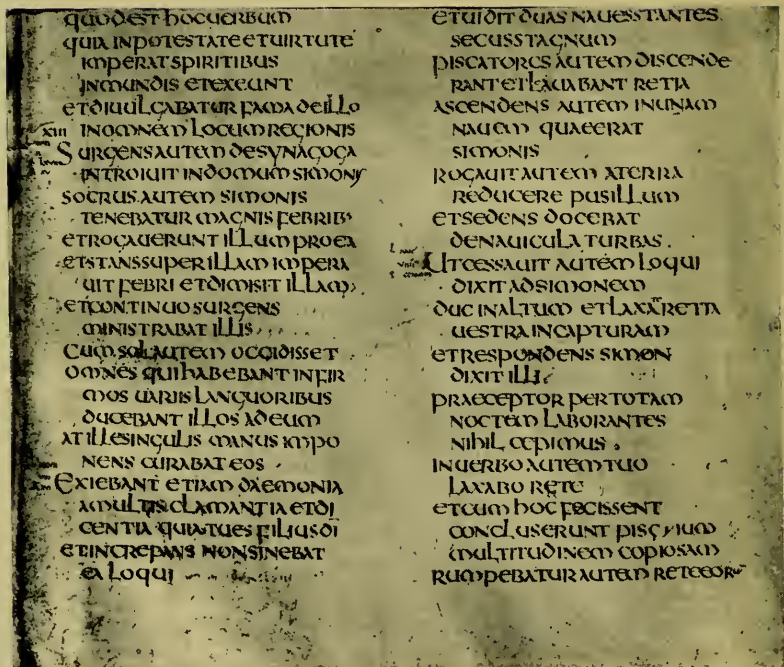 QUODEST HOCUERBUM
QUIA INPOTESTATE ETUIRTUTE
IMPERAT SPIRITIBUS
INMUNDIS ETEXEUNT
ETDIUULGABATUR FAMA DEILLO
XIII INOMNEM LOCUM REGIONIS
SURGENS AUTEM DESYNAGOGA
INTROIUIT INDOMUM SIMONIS
SOCRUS AUTEM SIMONIS
TENEBATUR MAGNIS FEBRIB
ETROGAUERUNT ILLUM PROEA
ETSTANS SUPER ILLAM IMPERA
UIT FEBRI ETDIMISIT ILLAM
ETCONTINUO SURGENS
MINISTRABAT ILLIS
CUM SOL AUTEM OCCIDISSET
OMNES QUI HABEBANT INFIR
MOS UARIIS LANGUORIBUS
DUCEBANT ILLOS ADEUM
AT ILLE SINGULIS MANUS IMPO
NENS CURABAT EOS
EXIEBANT ETIAM DAEMONIA
AMULTIS CLAMANTIA ETDI
CENTIA QUIA TUES FILIUS DI
ETINCREPANS NONSINEBAT
EA LOQUI
ETUIDIT DUAS NAUES STANTES
SECUS STAGNUM
PISCATORES AUTEM DISCENDE
RANT ETLAUABANT RETIA
ASCENDENS AUTEM INUNAM
NAUEM QUAEERAT
SIMONIS
ROGAUIT AUTEM ATERRA
REDUCERE PUSILLUM
ETSEDENS DOCEBAT
DENAUICULA TURBAS
UTCESSAUIT AUTEM LOQUI
DIXIT ADSIMONEM
DUC INALTUM ETLAXA RETIA
UESTRA INCAPTURAM
ETRESPONDENS SIMON
DIXIT ILLI
PRAECEPTOR PERTOTAM
NOCTEM LABORANTES
NIHIL CEPIMUS
INUERBO AUTEM TUO
LAXABO RETE
ETCUM HOC FECISSENT
CONCLUSERUNT PISCIUM
MULTITUDINEM COPIOSAM
RUMPEBATUR AUTEM RETE EOR